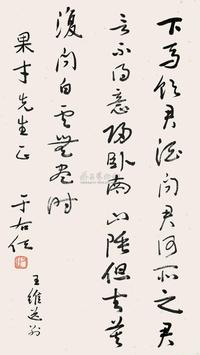 下马饮君酒问君何所之君
言不得意归卧南山陲但去莫
复问白云无尽时
果才先生正
于右任
王维送别